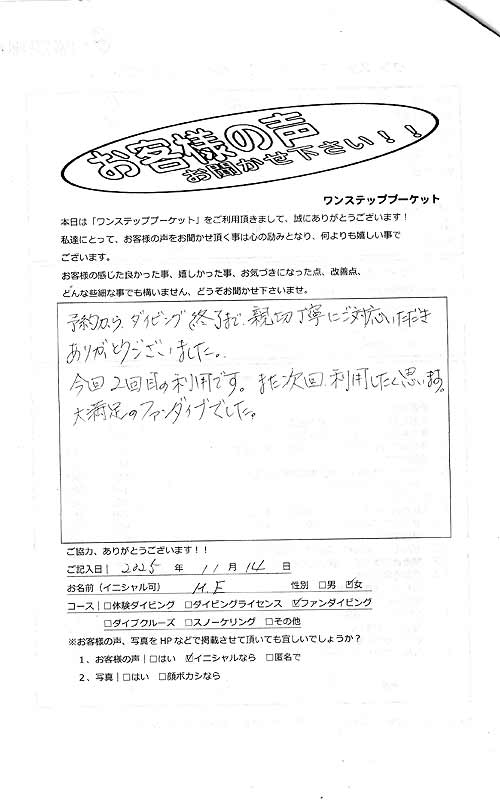 お客様の声
お聞かせ下さい！！
ワンステッププーケット
本日は「ワンステッププーケット」をご利用頂きまして、誠にありがとうございます！
私達にとって、お客様の声をお聞かせ頂く事は心の励みとなり、何よりも嬉しい事で
ございます。
お客様の感じた良かった事、嬉しかった事、お気づきになった点、改善点、
どんな些細な事でも構いません、どうぞお聞かせ下さいませ。
予約から、ダイビング終了まで、親切丁寧にご対応いただき
ありがとうございました。
今回2回目の利用です。また次回、利用したく思います。
大満足のファンダイブでした。
ご協力、ありがとうございます！！
ご記入日 | 2025 年 11 月 14 日
お名前（イニシャル可） H.E 性別 □男 ☑女
コース | □体験ダイビング □ダイビングライセンス ☑ファンダイビング
□ダイブクルーズ □スノーケリング □その他
※お客様の声、写真をHPなどで掲載させて頂いても宜しいでしょうか？
１、お客様の声 | □はい ☑イニシャルなら □匿名で
２、写真 | □はい □顔ボカシなら